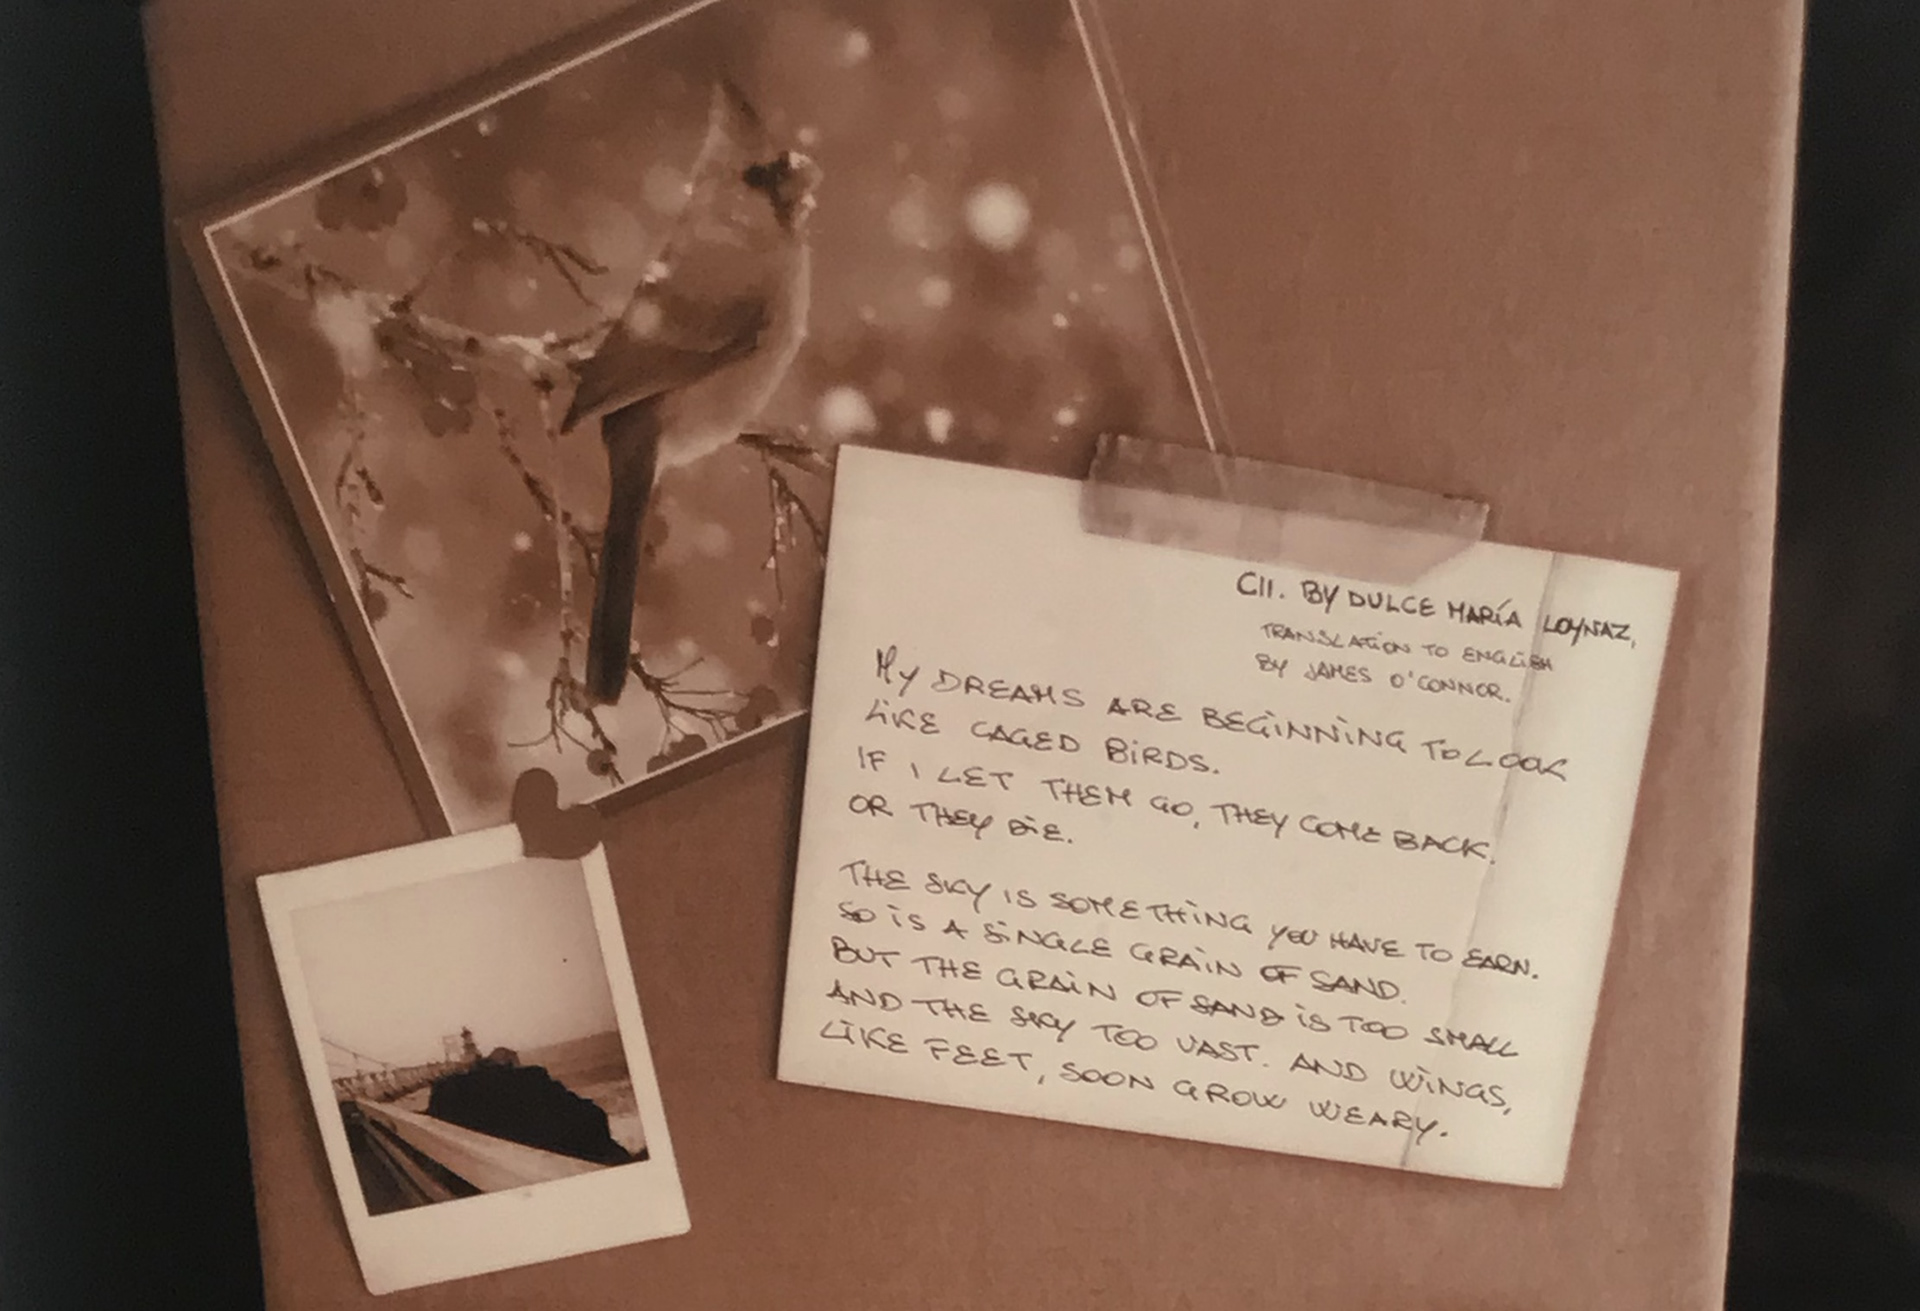 CII. BY DULCE MARÍA LOYNAZ,
TRANSLATION TO ENGLISH
BY JAMES O'CONNOR.
MY DREAMS ARE BEGINNING TO LOOK
LIKE CAGED BIRDS.
IF I LET THEM GO, THEY COME BACK.
OR THEY DIE.
THE SKY IS SOMETHING YOU HAVE TO EARN.
SO IS A SINGLE GRAIN OF SAND.
BUT THE GRAIN OF SAND IS TOO SMALL
AND THE SKY TOO VAST. AND WINGS,
LIKE FEET, SOON GROW WEARY.